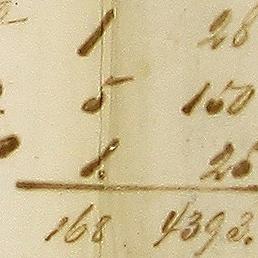 1 28
5 150
1. 25
168 4393.